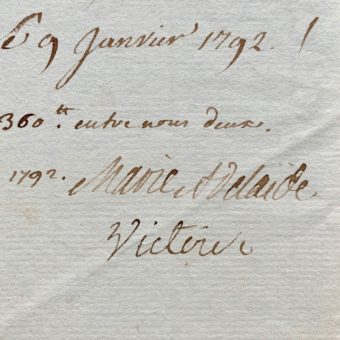 Le 9 Janvier 1792. /
360.tt entre nous deux.
1792. Marie Adelaide.
Victoire